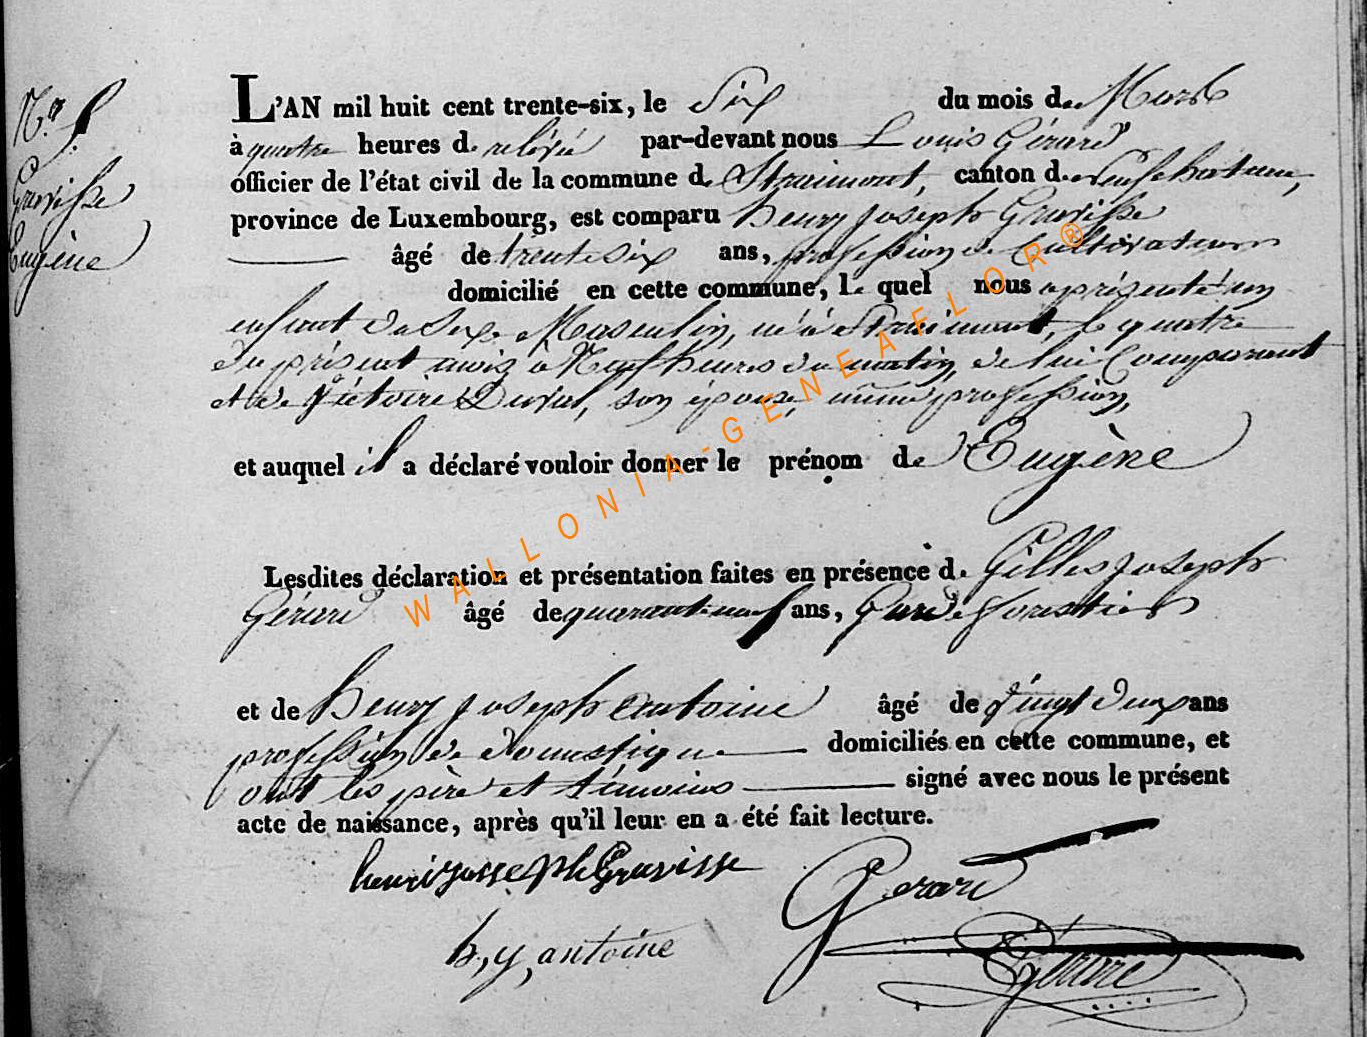 N.o 5.
Gravisse
Eugène
L'AN mil huit cent trente-six, le Six du mois de Mars
à quatre heures de relevée par-devant nous Louis Gérard
officier de l'état civil de la commune de Straimont, canton de Neufchateau,
province de Luxembourg, est comparu henry joseph Gravisse
âgé de trente six ans, profession de Cultivateur
domicilié en cette commune, le quel nous a présenté un
enfant du Sexe Masculin, né à Straimont, le quatre
du présent mois à Neuf heures du matin, de lui Comparant
et de Victoire Duval, son épouse, même profession,
et auquel il a déclaré vouloir donner le prénom de Eugène
Lesdites déclaration et présentation faites en présence de Gilles joseph
Gérard âgé de quarante neuf ans, Garde forestier
et de henry joseph antoine âgé de vingt deux ans
profession de domestique domiciliés en cette commune, et
ont les père et témoins signé avec nous le présent
acte de naissance, après qu'il leur en a été fait lecture.
henri josseph Gravisse Gerard
h, y, antoine
WALLONIA-GENEAFLOR®